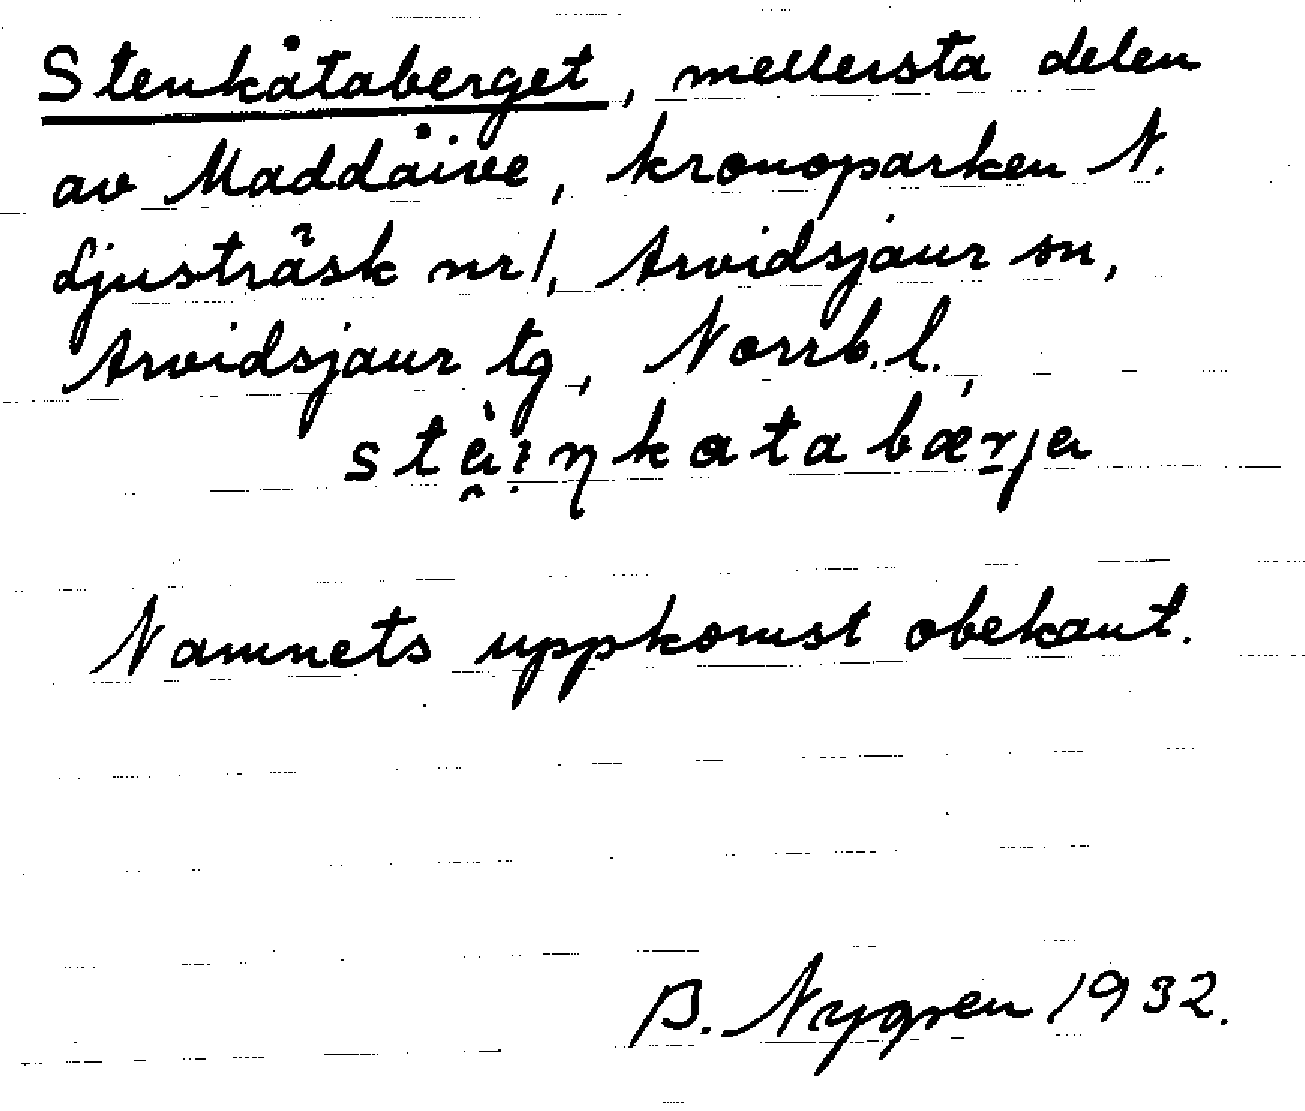 Stenkåtaberget, mellersta delen
av Maddåive, kronoparken N.
Ljusträsk nr 1, Arvidsjaur sn,
Arvidsjaur tg, Norrb. l.,
stèi̯ŋkatabær̲ja
Namnets uppkomst obekant.
B. Nygren 1932.